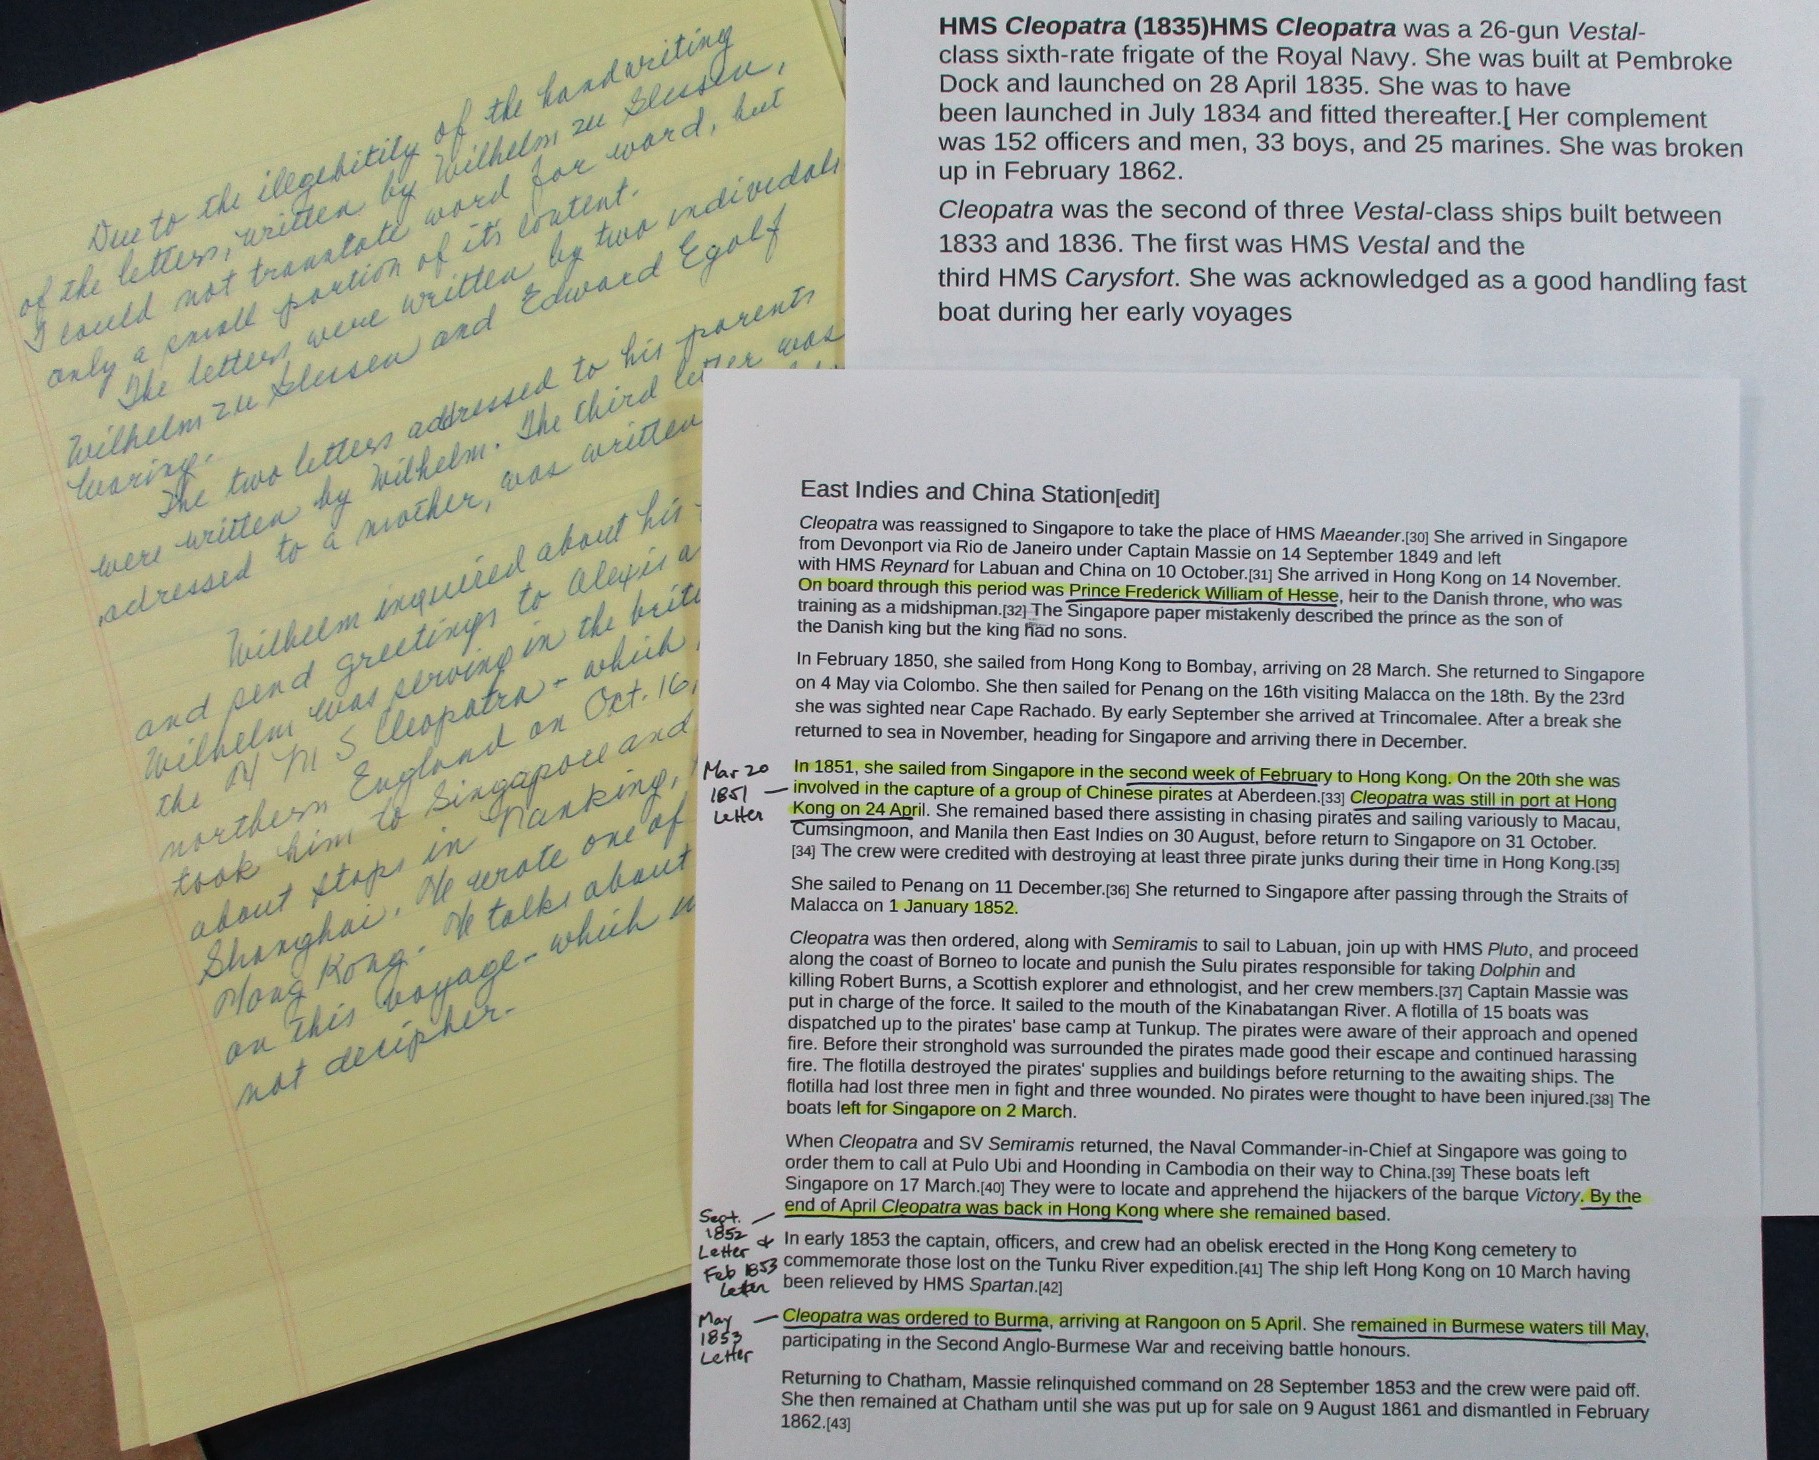 Due to the illegebitily of the handwriting
of the letters, written by Wilhelm zu Slessen,
I could not translate word for word, but
only a small portion of it's content.
The letters were written by two individals
Wilhelm zu Slessen and Edward Egolf
Waring.
The two letters addressed to his parents
were written by Wilhelm. The third letter was
adressed to a mother, was written
Wilhelm inquired about his
and send greetings to Alexis a
Wilhelm was serving in the brit
the H M S Cleopatra - which
northern England on Oct. 16,
took him to Singapore and
about stops in Nanking,
Shanghai. He wrote one of
Hong Kong. He talks about
on this voyage - which
not decipher.
HMS Cleopatra (1835)HMS Cleopatra was a 26-gun Vestal-
class sixth-rate frigate of the Royal Navy. She was built at Pembroke
Dock and launched on 28 April 1835. She was to have
been launched in July 1834 and fitted thereafter.[ Her complement
was 152 officers and men, 33 boys, and 25 marines. She was broken
up in February 1862.
Cleopatra was the second of three Vestal-class ships built between
1833 and 1836. The first was HMS Vestal and the
third HMS Carysfort. She was acknowledged as a good handling fast
boat during her early voyages
East Indies and China Station[edit]
Cleopatra was reassigned to Singapore to take the place of HMS Maeander.[30] She arrived in Singapore
from Devonport via Rio de Janeiro under Captain Massie on 14 September 1849 and left
with HMS Reynard for Labuan and China on 10 October.[31] She arrived in Hong Kong on 14 November.
On board through this period was Prince Frederick William of Hesse, heir to the Danish throne, who was
training as a midshipman.[32] The Singapore paper mistakenly described the prince as the son of
the Danish king but the king had no sons.
In February 1850, she sailed from Hong Kong to Bombay, arriving on 28 March. She returned to Singapore
on 4 May via Colombo. She then sailed for Penang on the 16th visiting Malacca on the 18th. By the 23rd
she was sighted near Cape Rachado. By early September she arrived at Trincomalee. After a break she
returned to sea in November, heading for Singapore and arriving there in December.
Mar 20
1851
Letter
In 1851, she sailed from Singapore in the second week of February to Hong Kong. On the 20th she was
involved in the capture of a group of Chinese pirates at Aberdeen.[33] Cleopatra was still in port at Hong
Kong on 24 April. She remained based there assisting in chasing pirates and sailing variously to Macau,
Cumsingmoon, and Manila then East Indies on 30 August, before return to Singapore on 31 October.
[34] The crew were credited with destroying at least three pirate junks during their time in Hong Kong.[35]
She sailed to Penang on 11 December.[36] She returned to Singapore after passing through the Straits of
Malacca on 1 January 1852.
Cleopatra was then ordered, along with Semiramis to sail to Labuan, join up with HMS Pluto, and proceed
along the coast of Borneo to locate and punish the Sulu pirates responsible for taking Dolphin and
killing Robert Burns, a Scottish explorer and ethnologist, and her crew members.[37] Captain Massie was
put in charge of the force. It sailed to the mouth of the Kinabatangan River. A flotilla of 15 boats was
dispatched up to the pirates' base camp at Tunkup. The pirates were aware of their approach and opened
fire. Before their stronghold was surrounded the pirates made good their escape and continued harassing
fire. The flotilla destroyed the pirates' supplies and buildings before returning to the awaiting ships. The
flotilla had lost three men in fight and three wounded. No pirates were thought to have been injured.[38] The
boats left for Singapore on 2 March.
When Cleopatra and SV Semiramis returned, the Naval Commander-in-Chief at Singapore was going to
order them to call at Pulo Ubi and Hoonding in Cambodia on their way to China.[39] These boats left
Singapore on 17 March.[40] They were to locate and apprehend the hijackers of the barque Victory. By the
end of April Cleopatra was back in Hong Kong where she remained based.
Sept.
1852
Letter &
Feb 1853
Letter
In early 1853 the captain, officers, and crew had an obelisk erected in the Hong Kong cemetery to
commemorate those lost on the Tunku River expedition.[41] The ship left Hong Kong on 10 March having
been relieved by HMS Spartan.[42]
May
1853
Letter
Cleopatra was ordered to Burma, arriving at Rangoon on 5 April. She remained in Burmese waters till May,
participating in the Second Anglo-Burmese War and receiving battle honours.
Returning to Chatham, Massie relinquished command on 28 September 1853 and the crew were paid off.
She then remained at Chatham until she was put up for sale on 9 August 1861 and dismantled in February
1862.[43]